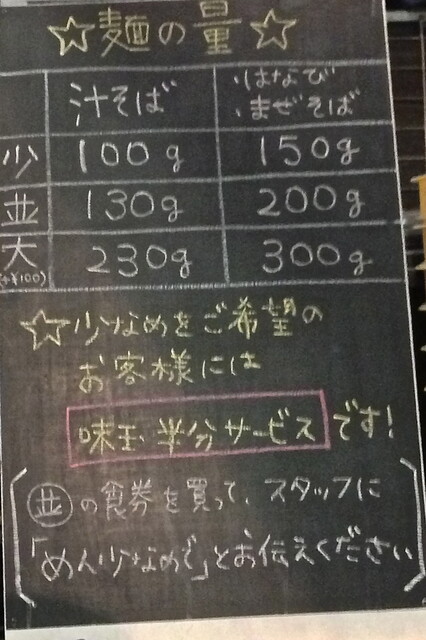 ☆麺の量☆
汁そば ・はなび ・まぜそば
少 100g 150g
並 130g 200g
大(+¥100) 230g 300g
☆少なめをご希望の
お客様には
味玉半分サービスです!
(並の食券を買って、スタッフに
「めん少なめで」とお伝えください)